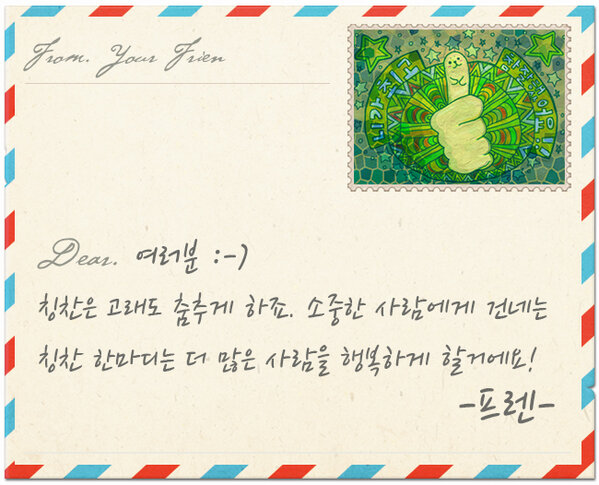 From. Your Frien
니가 최고
참 잘했어요!!
Dear. 여러분 :-)
칭찬은 고래도 춤추게 하죠. 소중한 사람에게 건네는
칭찬 한마디는 더 많은 사람을 행복하게 할거에요!
-프렌-